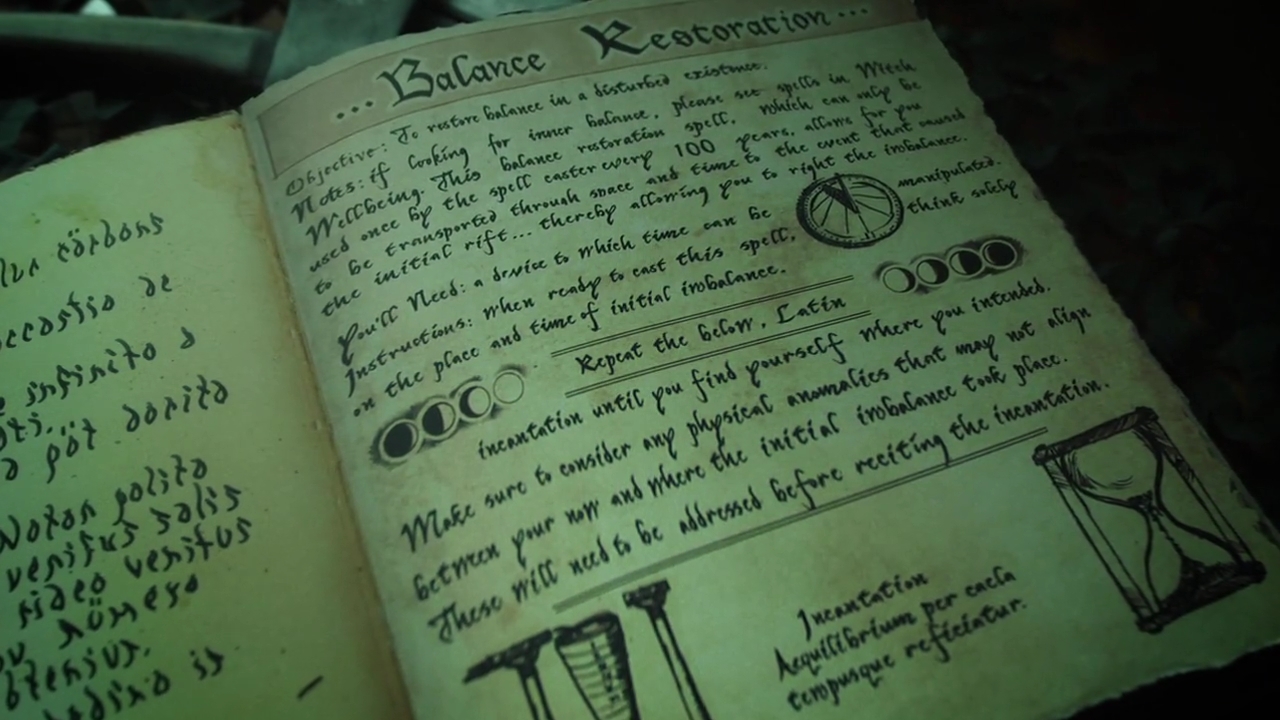 de
infinito a
dorito
Notan polito
venitus salis
video venitus
is
...Balance Restoration...
Objective: To restore balance in a disturbed existence.
Notes: if looking for inner balance, please see spells in Witch
Wellbeing. This balance restoration spell, which can only be
used once by the spell caster every 100 years, allows for you
to be transported through space and time to the event that caused
the initial rift... thereby allowing you to right the imbalance.
You'll Need: a device to which time can be manipulated.
Instructions: When ready to cast this spell, think solely
on the place and time of initial imbalance.
Repeat the below, Latin
incantation until you find yourself where you intended.
Make sure to consider any physical anomalies that may not align
between your now and where the initial imbalance took place.
These will need to be addressed before reciting the incantation.
Incantation
Aequilibrium per caela
tempusque reficiatur.